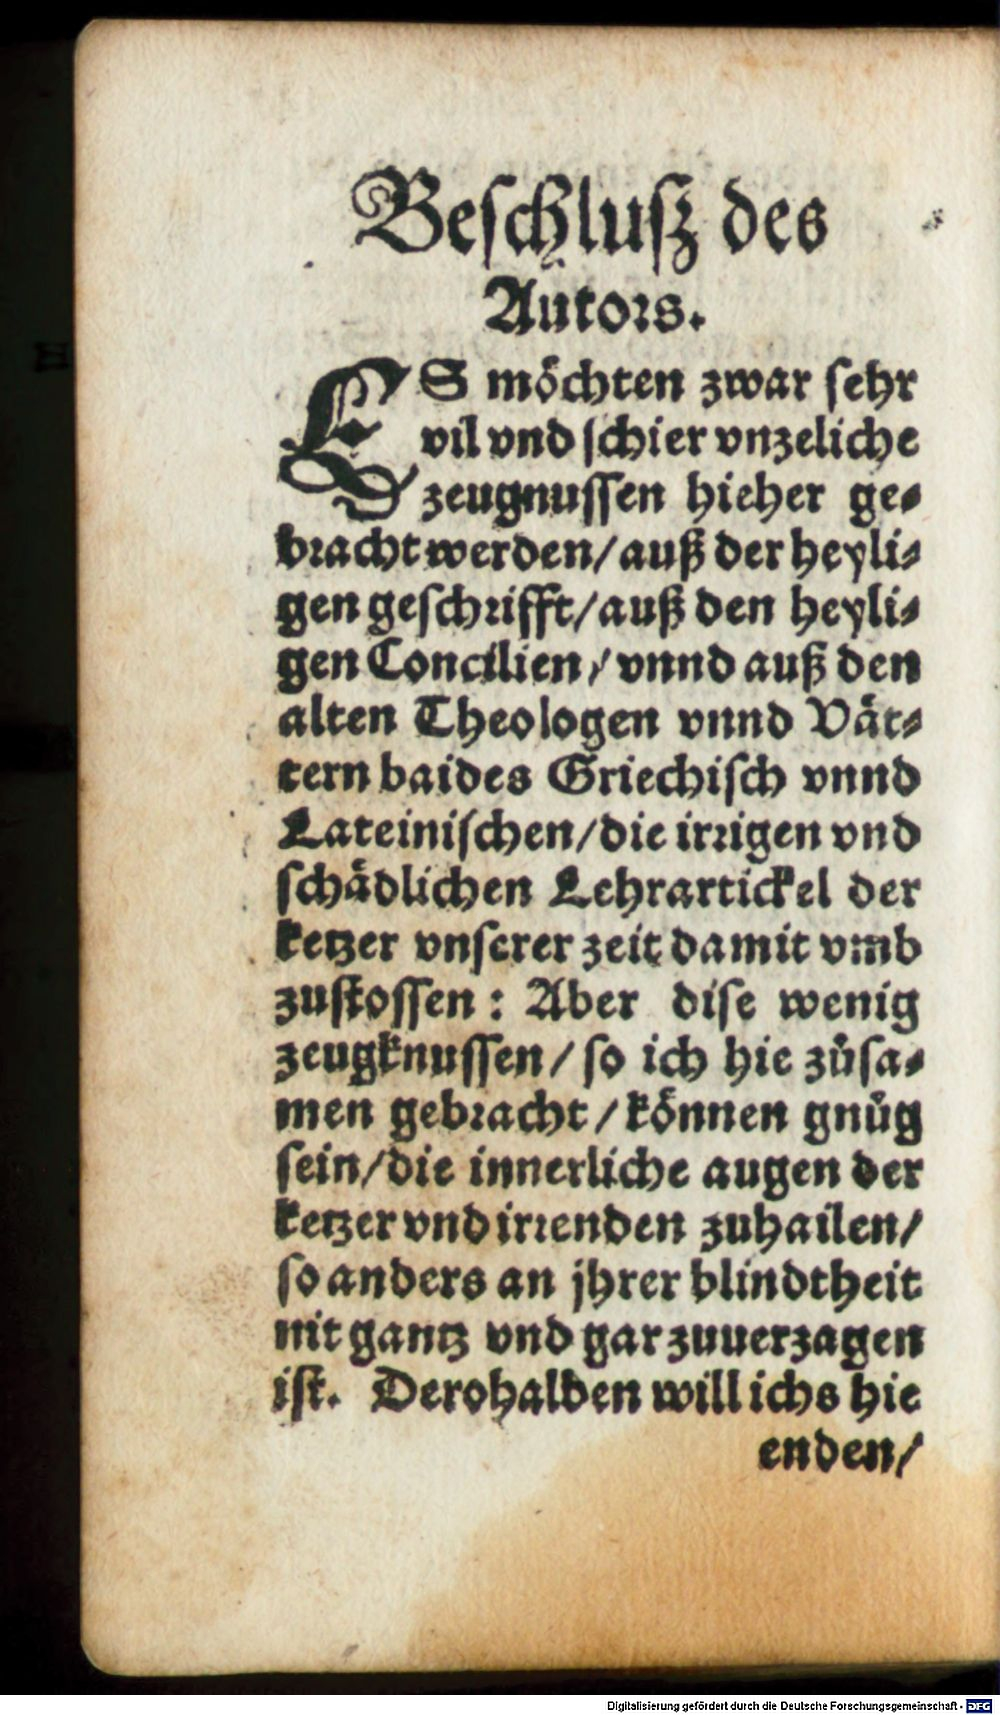 Beschlusz des
Autors.
ES möchten zwar sehr
vil vnd schier vnzeliche
zeugnussen hieher ge⸗
bracht werden/ auß der heyli⸗
gen geschrifft/ auß den heyli⸗
gen Concilien/ vnnd auß den
alten Theologen vnnd Vät⸗
tern baides Griechisch vnnd
Lateinischen/ die irrigen vnd
schädlichen Lehrartickel der
ketzer vnserer zeit damit vmb
zustossen: Aber dise wenig
zeugknussen/ so ich hie zůsa⸗
men gebracht/ können gnůg
sein/ die innerliche augen der
ketzer vnd irrenden zuhailen/
so anders an jhrer blindtheit
nit gantz vnd gar zuuerzagen
ist. Derohalben will ichs hie
enden/
Digitalisierung gefördert durch die Deutsche Forschungsgemeinschaft - DFG